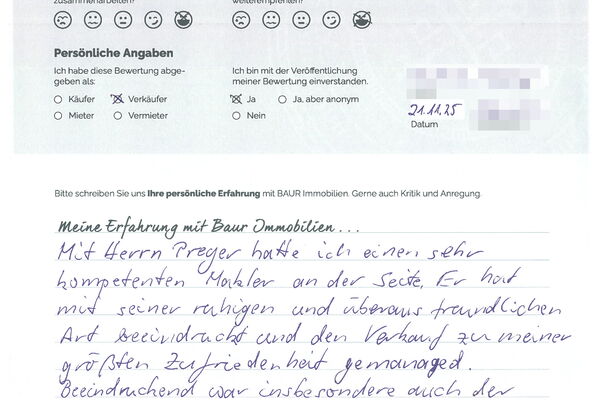 zusammenarbeiten? weiterempfehlen?
Persönliche Angaben
Ich habe diese Bewertung abge-
geben als:
Käufer Verkäufer
Mieter Vermieter
Ich bin mit der Veröffentlichung
meiner Bewertung einverstanden.
Ja Ja, aber anonym
Nein
21.11.25
Datum
Bitte schreiben Sie uns Ihre persönliche Erfahrung mit BAUR Immobilien. Gerne auch Kritik und Anregung.
Meine Erfahrung mit Baur Immobilien...
Mit Herrn Preger hatte ich einen sehr
kompetenten Makler an der Seite. Er hat
mit seiner ruhigen und überaus freundlichen
Art beeindruckt und den Verkauf zu meiner
größten Zufriedenheit gemanaged.
Beeindruckend war insbesondere auch der